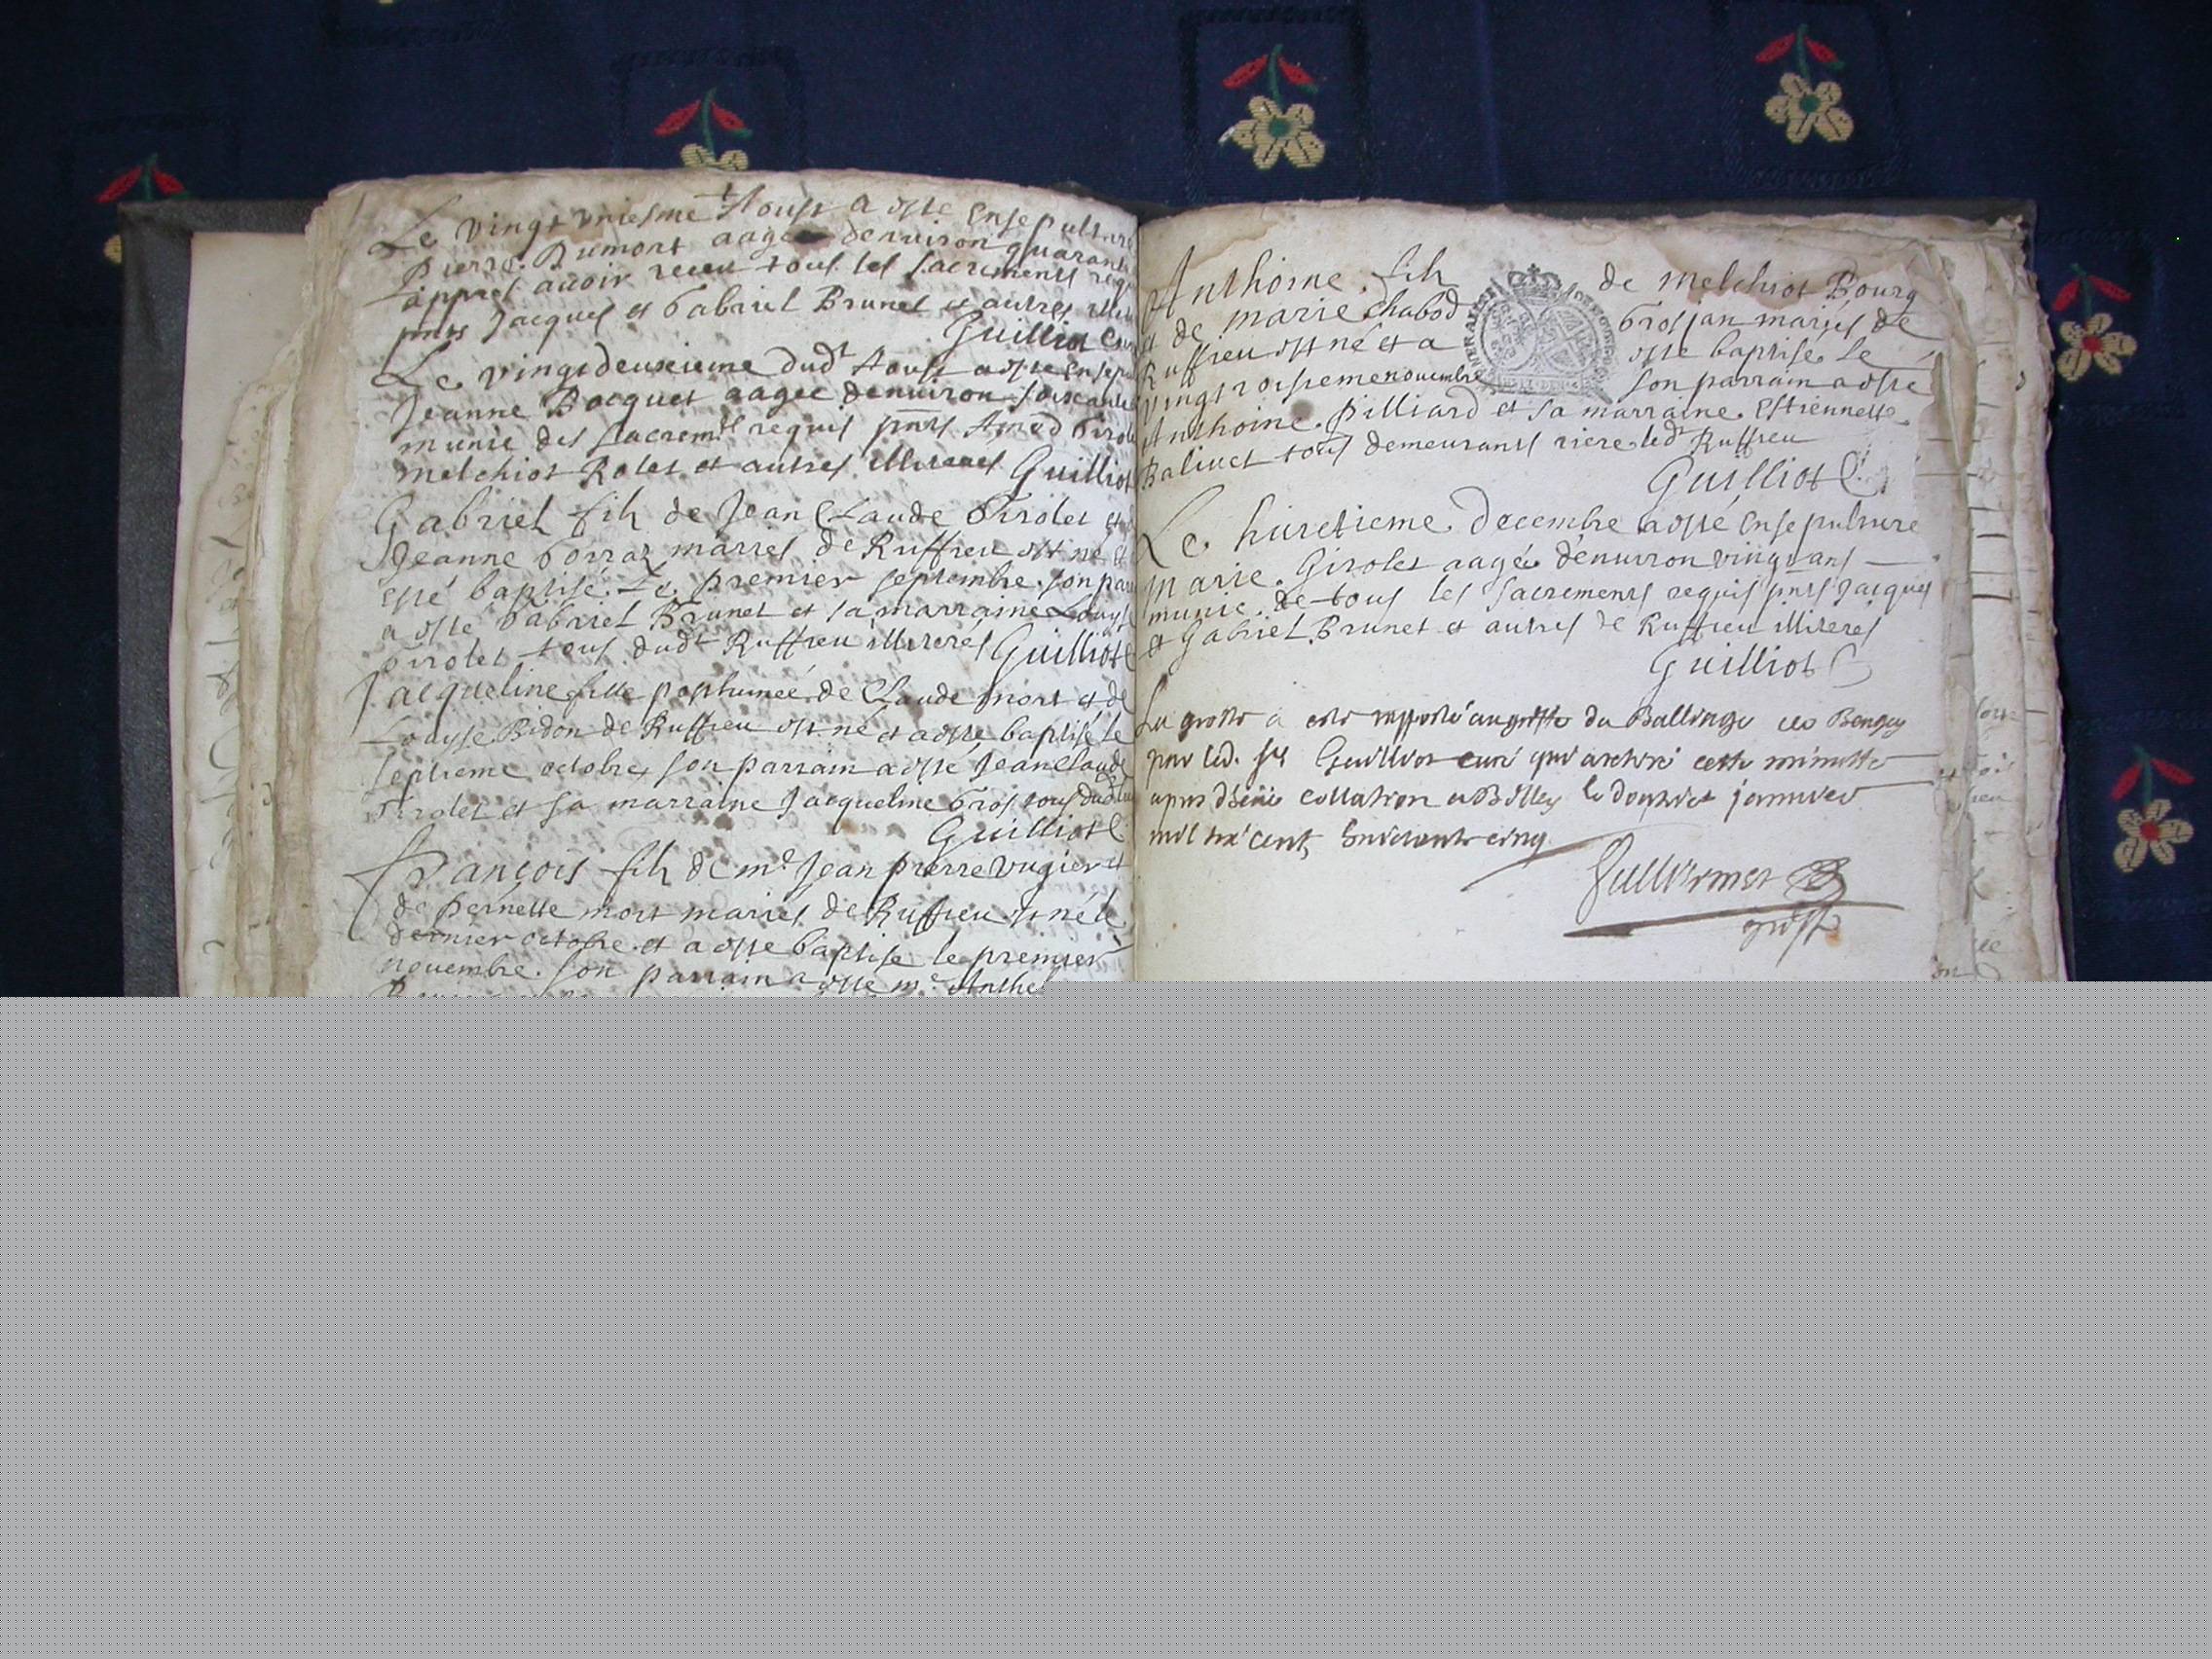 Le vingt uniesme Aoust a esté ensepulturé
Pierre Rumort aagé denviron quarante
appres avoir receu tous les sacrements req
pnts Jacques et Gabriel Brunet et autres
Guilliot
Le vingtdeuxieme dudt Aoust a esté ensep
Jeanne Bocquet aagee denviron soixante
munie des sacremts requis pnts Amed Girole
Melchiot Rolet et autres illiteres Guilliot
Gabriel fils de Jean Claude Girolet et
Jeanne Gorraz mariés de Ruffieu est né et
esté baptisé le premier septembre son par
a esté Gabriel Brunet et sa marraine Louyse
Girolet tous dudt Ruffieu illiteres Guilliot
Jacqueline fille posthumée de Claude mort et de
Louyse Bidon de Ruffieu est né et a esté baptisé le
septieme octobre son parrain a esté Jean Claude
Girolet et sa marraine Jacqueline Gros tous dudt
Guilliot C
François fils de me Jean pierre Vugier et
de pernette mort mariés de Ruffieu est né le
dernier octobre et a esté baptisé le premier
novembre son parrain a esté me Anthe
Anthoine fils de Melchiot Bourg
et de marie Chabod Grosjan mariés de
Ruffieu est né et a esté baptisé le
vingtroisieme novembre son parrain a esté
Anthoine Pilliard et sa marraine Estiennette
Balivet tous demeurants riere ledt Ruffieu
Guilliot C
Le huictieme decembre a esté ensepulturé
Marie Girolet aagée denviron vingt ans
munie de tous les sacrements requis pnts Jacques
et Gabriel Brunet et autres de Ruffieu illiteres
Guilliot C
La grosse a esté apporté au greffe du Balliage de Bengey
par led. sr Guilliot curé qui a retiré cette minutte
apres collation a Belley le janvier
mil six cents cinq
greff